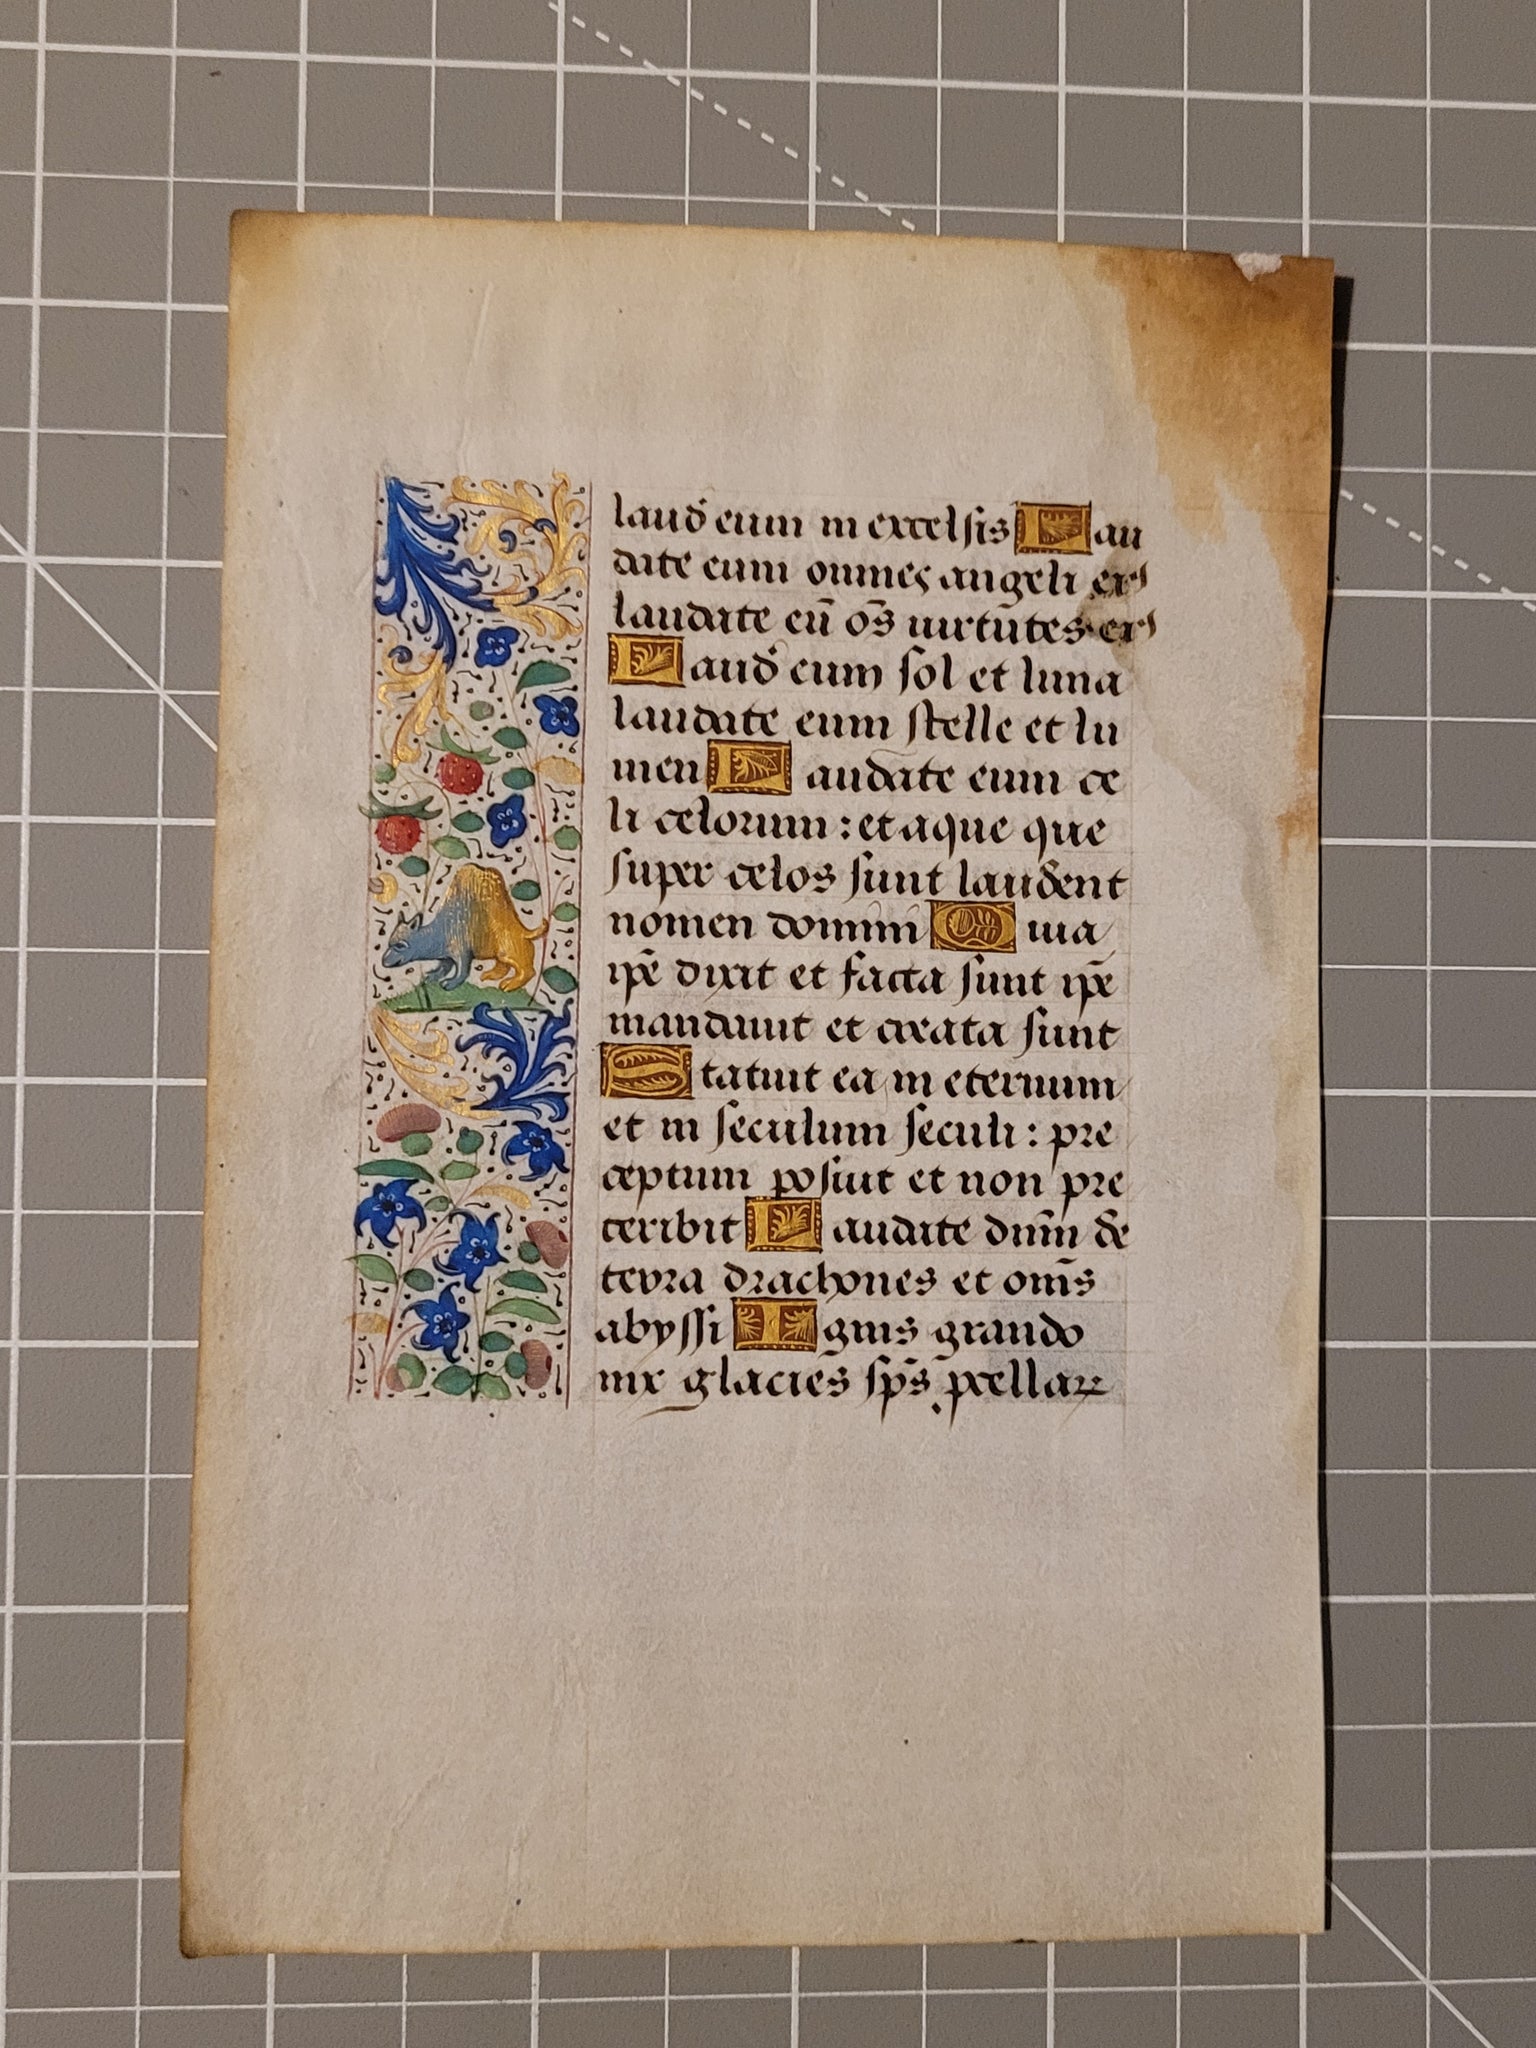 laud eum in excelsis Lau
date eum omnes angeli ex
laudate eū oēs uirtūtes ex
Laud eum sol et luna
laudate eum stelle et lu
men Laudate eum ce
li celorum : et aque que
super celos sunt laudent
nomen domini Quia
ipē dixit et facta sunt ipē
mandauit et creata sunt
Statuit ea in eternum
et in seculum seculi : pre
ceptum posuit et non pre
teribit Laudate dnm̄ de
terra drachones et om̄s
abyssi Ignis grando
nix glacies sps̄ pcellaꝝ